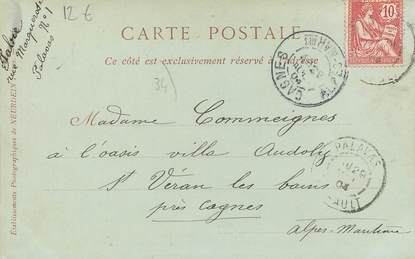 12 €
Fabre
rue Maguelone
N° 1
Palavas
CARTE POSTALE
Ce côté est exclusivement réservé à l'adresse
34
10
CAGNES
Madame Commeignes
à l'oasis villa Andoly
St Véran les bains
près Cagnes
Alpes-Maritime
PALAVAS
04
HÉRAULT
Etablissements Photographiques de NEURDEIN